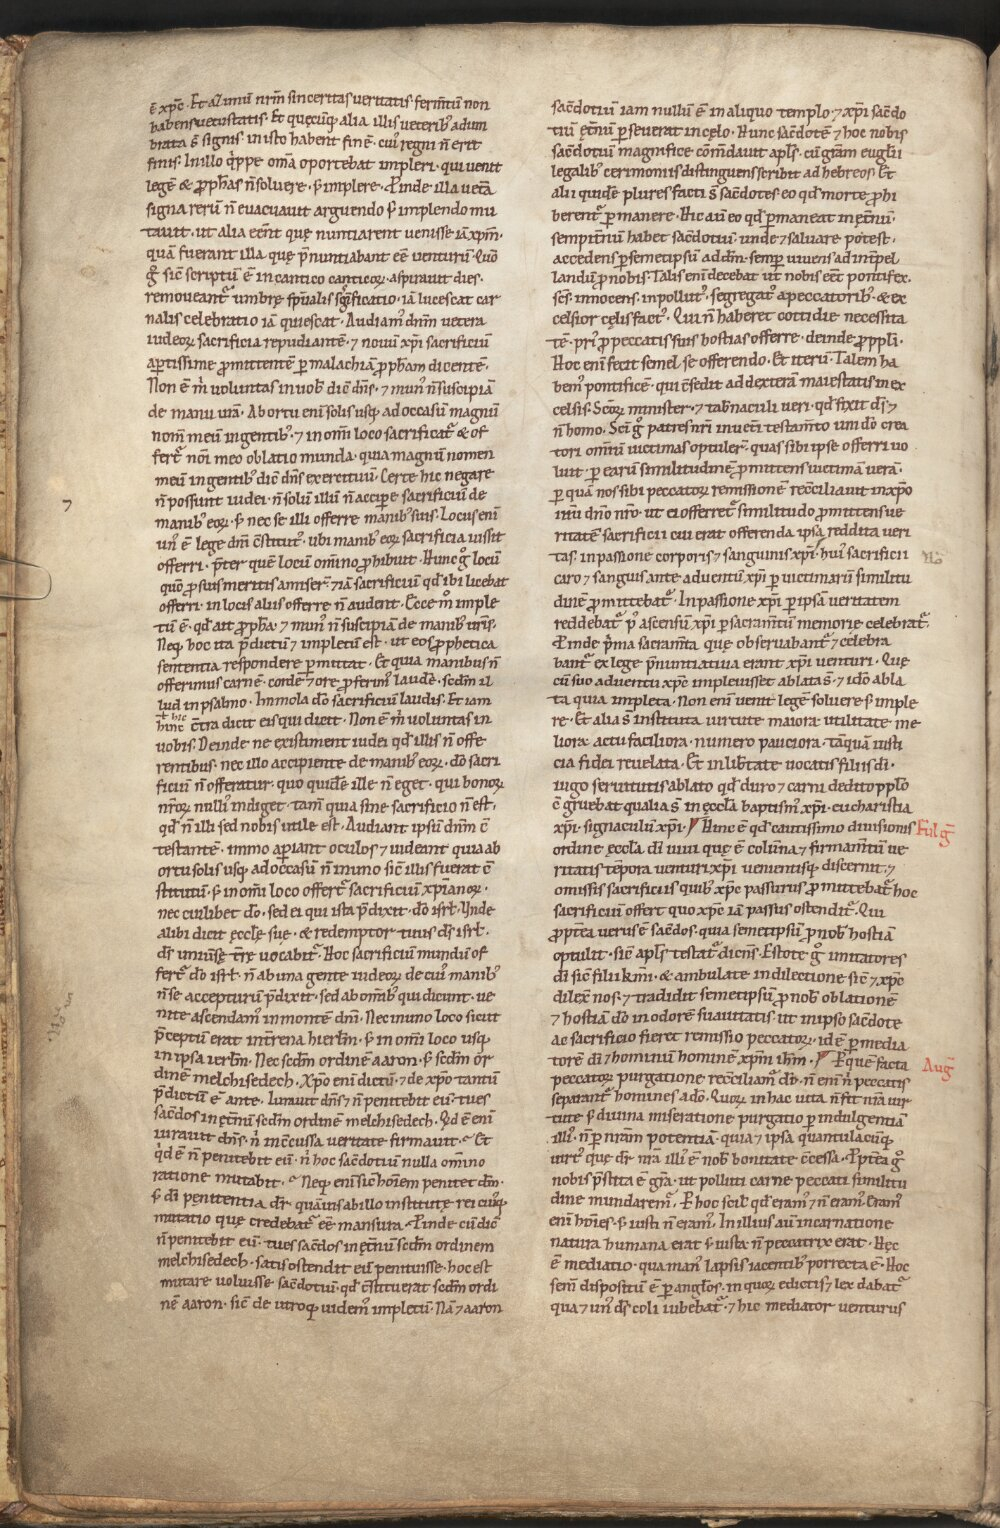 ē xp̄c. Et azimū nr̄m sinceritas veritatis fermtū non
habens uetustatis. Et quęcūq; alia illis veterib; adum
brata s̄ signis. in isto habent finē. cui; regni n̄ erit
finis. In illo q̇ppe om̄a oportebat impleri. qui venit
legē & ꝓph̄as n̄ soluere. s; implere. Ꝓinde illa vetā
signa rerū n̄ evacuavit arguendo s; implendo mu
tavit. ut alia eēnt quę nuntiarent uenisse iā xpm̄.
quā fuerant illa quę p̄nuntiabant eē venturū. Quō
g̊ sic̄ scriptū ē in cantico canticoꝝ. aspiravit dies.
removeant᷑ umbrę. sp̄ualis sḡficatio. iā lucescat car
nalis celebratio iā quiescat. Audiam; dn̄m vetera
iudeoꝝ sacrificia repudiantē. ⁊ nouū xp̄i sacrificiū
aꝑtissime ꝓmittentē ꝑ malachiā ꝓph̄am dicentē.
Non ē m̄ uoluntas in uob̄ dic̄ dn̄s. ⁊ mun; n̄ suscipiā
de manu ur̄a. Ab ortu eni solis usq; ad occasū magnū
nom̄ meū in gentib;. ⁊ in om̄i loco sacrificat᷑ & of
fert᷑ nōi meo oblatio munda. quia magnū nomen
meū in gentib; dic̄ dn̄s exercituū. Certe hic negare
n̄ possunt iudei. n̄ solū illū n̄ accipe sacrificiū de
manib; eoꝝ. s; nec se illi offerre manib; suis. Locus eni
un; ē lege dn̄i c̄stitut;. ubi manib; eoꝝ sacrificia iussit
offerri. p̄ter quē locū om̄ino ꝓhibuit. Hunc g̊ locū
quō ꝓ suis meritis amiser̄. ⁊ iā sacrificiū qd̄ ibi licebat
offerri. in locis aliis offerre n̄ audent. Ecce m̊ imple
tū ē. qd̄ ait ꝓph̄a. ⁊ mun; n̄ suscipiā de manib; ur̄is.
Neq; hoc ita p̄dictū ⁊ impletū est. ut eos ꝓphetica
sententia respondere ꝑmittat. Et quia manibus n̄
offerimus carnē. corde ⁊ ore ꝓferim; laudē. scdm̄ il
lud in psalmo. Immola dō sacrificiū laudis. Et iam
ł hic
hinc c̄tra dicit eis qui dicit. Non ē m̄ voluntas in
uobis. Deinde ne existiment iudei qd̄ illis n̄ offe
rentibus. nec illo accipiente de manib; eoꝝ. dō sacri
ficiū n̄ offeratur. quo quidē ille n̄ eget. qui bonoꝝ
nr̄oꝝ nulli; indiget. tam̄ quia sine sacrificio n̄ est.
qd̄ n̄ illi sed nobis utile est. Audiant ipsū dn̄m c̄
testantē. immo aꝑiant oculos ⁊ uideant quia ab
ortu solis usq; ad occasū n̄ in uno sic̄ illis fuerat c̄
stitutū. s; in om̄i loco offert᷑ sacrificiū xp̄ianoꝝ.
nec cuilibet dō. sed ei qui ista p̄dixit. dō isrl̄. Unde
alibi dicit ęcclę sue. & redemptor tuus ds̄ isrl̄.
ds̄ uniūsę tr̄ę vocabit᷑. Hoc sacrificiū mundū of
fert᷑ dō isrl̄. n̄ ab una gente iudeoꝝ de cui; manib;
n̄ se accepturū p̄dixit. sed ab om̄ib; qui dicunt. ve
nite ascendam; in montē dn̄i. Nec in uno loco sicut
p̄ceptū erat in t̄rena hierl̄m. s; in om̄i loco usq;
in ipsa ierl̄m. Nec scdm̄ ordinē aaron. s; scdm̄ or
dinē melchisedech. Xp̄o eni dictū. ⁊ de xp̄o tantū
p̄dictū ē ante. Iuravit dn̄s ⁊ n̄ penitebit eū. tu es
sac̄dos in et̄nū scdm̄ ordinē melchisedech. Qd̄ ē eni
iurauit dn̄s. n̄ inc̄cussa veritate firmavit. Et
q̇d ē n̄ penitebit eū. n̄ hoc sac̄dotiū nulla om̄ino
ratione mutabit. Neq; eni sic̄ hoīem penitet dm̄.
s; dī pęnitentia dr̄. quāuis ab illo institutę rei cui;q;
mutatio quę credebat᷑ eē mansura. Ꝓinde cū dic̄
n̄ penitebit eū. tu es sac̄dos in et̄nū scdm̄ ordinem
melchisedech. satis ostendit eū penituisse. hoc est
mutare voluisse sac̄dotiū. qd̄ c̄stituerat scdm̄ ordi
nē aaron. sic̄ de utroq; uidem; impletū. Nā ⁊ aaron
sac̄dotiū iam nullū ē in aliquo templo. ⁊ xp̄i sac̄do
tiū ęt̄nū ꝑseuerat in cęlo. Hunc sac̄dotē ⁊ hoc nobis
sac̄dotiū magnifice cōm̄dauit apl̄s. cū gr̄am euglii
legalib; cerimoniis distinguens scribit ad hebreos. Et
alii quidē plures facti s̄ sac̄dotes. eo qd̄ morte ꝓhi
berent᷑ ꝑmanere. Hic aū eo qd̄ ꝑmaneat in ęt̄nū.
sempit̄nū habet sac̄dotiū. unde ⁊ saluare potest.
accedens ꝑ semetipsū ad dm̄. semꝑ vivens ad int̄pel
landū ꝓ nobis. Talis eni decebat ut nobis eēt pontifex.
scs̄. innocens. inpollut;. segregat; a peccatorib;. & ex
celsior cęlis fact;. Qui n̄ haberet cottidie necessita
tē. pri; ꝓ peccatis suis hostias offerre. deinde ꝓ ppl̄i.
Hoc eni fecit semel se offerendo. Et iterū. Talem ha
bem; pontificē. qui c̄sedit ad dexterā maiestatis in ex
celsis. Scōꝝ minister. ⁊ tab̄naculi veri. qd̄ fixit ds̄ ⁊
n̄ homo. Sci g̊ patres nr̄i in uet̄i testam̄to uni dō crea
tori om̄iū victimas optuler̄. quas sibi ipse offerri uo
luit. ꝑ earū similitudinē ꝓmittens uictimā verā.
ꝑ quā nos sibi peccatoꝝ remissionē rec̄ciliauit in xp̄o
ih̄u dn̄o nr̄o. ut ei offerret᷑ similitudo ꝓmittens ve
ritatē sacrificii cui erat offerenda ipsa reddita veri
tas. in passione corporis ⁊ sanguinis xp̄i. hui; sacrificii
caro ⁊ sanguis ante adventū xp̄i ꝑ victimarū similitu
dinē ꝓmittebat᷑. In passione xp̄i ꝑ ipsā veritatem
reddebat᷑. p̄ ascensū xp̄i ꝑ sacram̄tū memorię celebrat᷑.
Ꝓinde p̄ma sacram̄ta que observabant᷑ ⁊ celebra
bant᷑ ex lege p̄nuntiatiua erant xp̄i venturi. Quę
cū suo adventu xp̄c implevisset ablata s̄. ⁊ ido abla
ta quia impleta. Non eni venit legē soluere s; imple
re. Et alia s̄ instituta virtute maiora. utilitate me
liora. actu faciliora. numero pauciora. tāquā iusti
cia fidei revelata. Et in lib̄tate vocatis filiis dī.
iugo servitutis ablato qd̄ duro ⁊ carni dedito ppl̄o
c̄gruebat qualia s̄ in ęccl̄a. baptism; xp̄i. eucharistia
xp̄i. signaculū xp̄i. Hinc ē qd̄ cautissimo divisionis Fulḡ
ordine ęccl̄a dī vivi quę ē colūna ⁊ firmam̄tū ue
ritatis tēpora venturi xp̄i venientisq; discernit. ⁊
omissis sacrificiis quib; xp̄c passurus ꝓmittebat᷑. hoc
sacrificiū offert quo xp̄c iā passus ostendit᷑. Qui
ꝓpt̄ea verus ē sac̄dos. quia semetipsū ꝓ nob̄ hostiā
optulit. sic̄ apl̄s testat᷑ dicn̄s. Estote g̊ imitatores
dī sic̄ filii km̄i. & ambulate in dilectione sic̄ ⁊ xp̄c
dilex̄ nos. ⁊ tradidit semetipsū ꝓ nob̄ oblationē
⁊ hostiā dō in odorē suauitatis. ut in ipso sac̄dote
ac sacrificio fieret remissio peccatoꝝ. id ē ꝑ media
torē dī ⁊ hominū hominē xpm̄ ih̄m. Ꝑ quē facta Auḡ
peccatoꝝ purgatione rec̄ciliam; dō. n̄ eni n̄ peccatis
separant᷑ homines a dō. Quoꝝ in hac vita n̄ fit nr̄a vir
tute s; divina miseratione purgatio ꝑ indulgentiā
illi;. n̄ ꝑ nr̄am potentiā. quia ⁊ ipsa quantulacūq;
virt; quę dr̄ nr̄a. illi; ē nob̄ bonitate c̄cessa. Ꝓpt̄ea g̊
nobis p̄stita ē gr̄a. ut polluti carne peccati similitu
dine mundarem;. Ꝑ hoc scil; qd̄ eram; ⁊ n̄ eram;. Eram;
eni hoīes. s; iusti n̄ eram;. In illius aū incarnatione
natura humana erat. s; iusta. n̄ peccatrix erat. Hęc
ē mediatio. qua man; lapsis iacentib; porrecta ē. Hoc
sem̄ dispositū ē ꝑ angl̄os. in quoꝝ edictis ⁊ lex dabat᷑
qua ⁊ un; ds̄ coli iubebat᷑. ⁊ hic mediator venturus